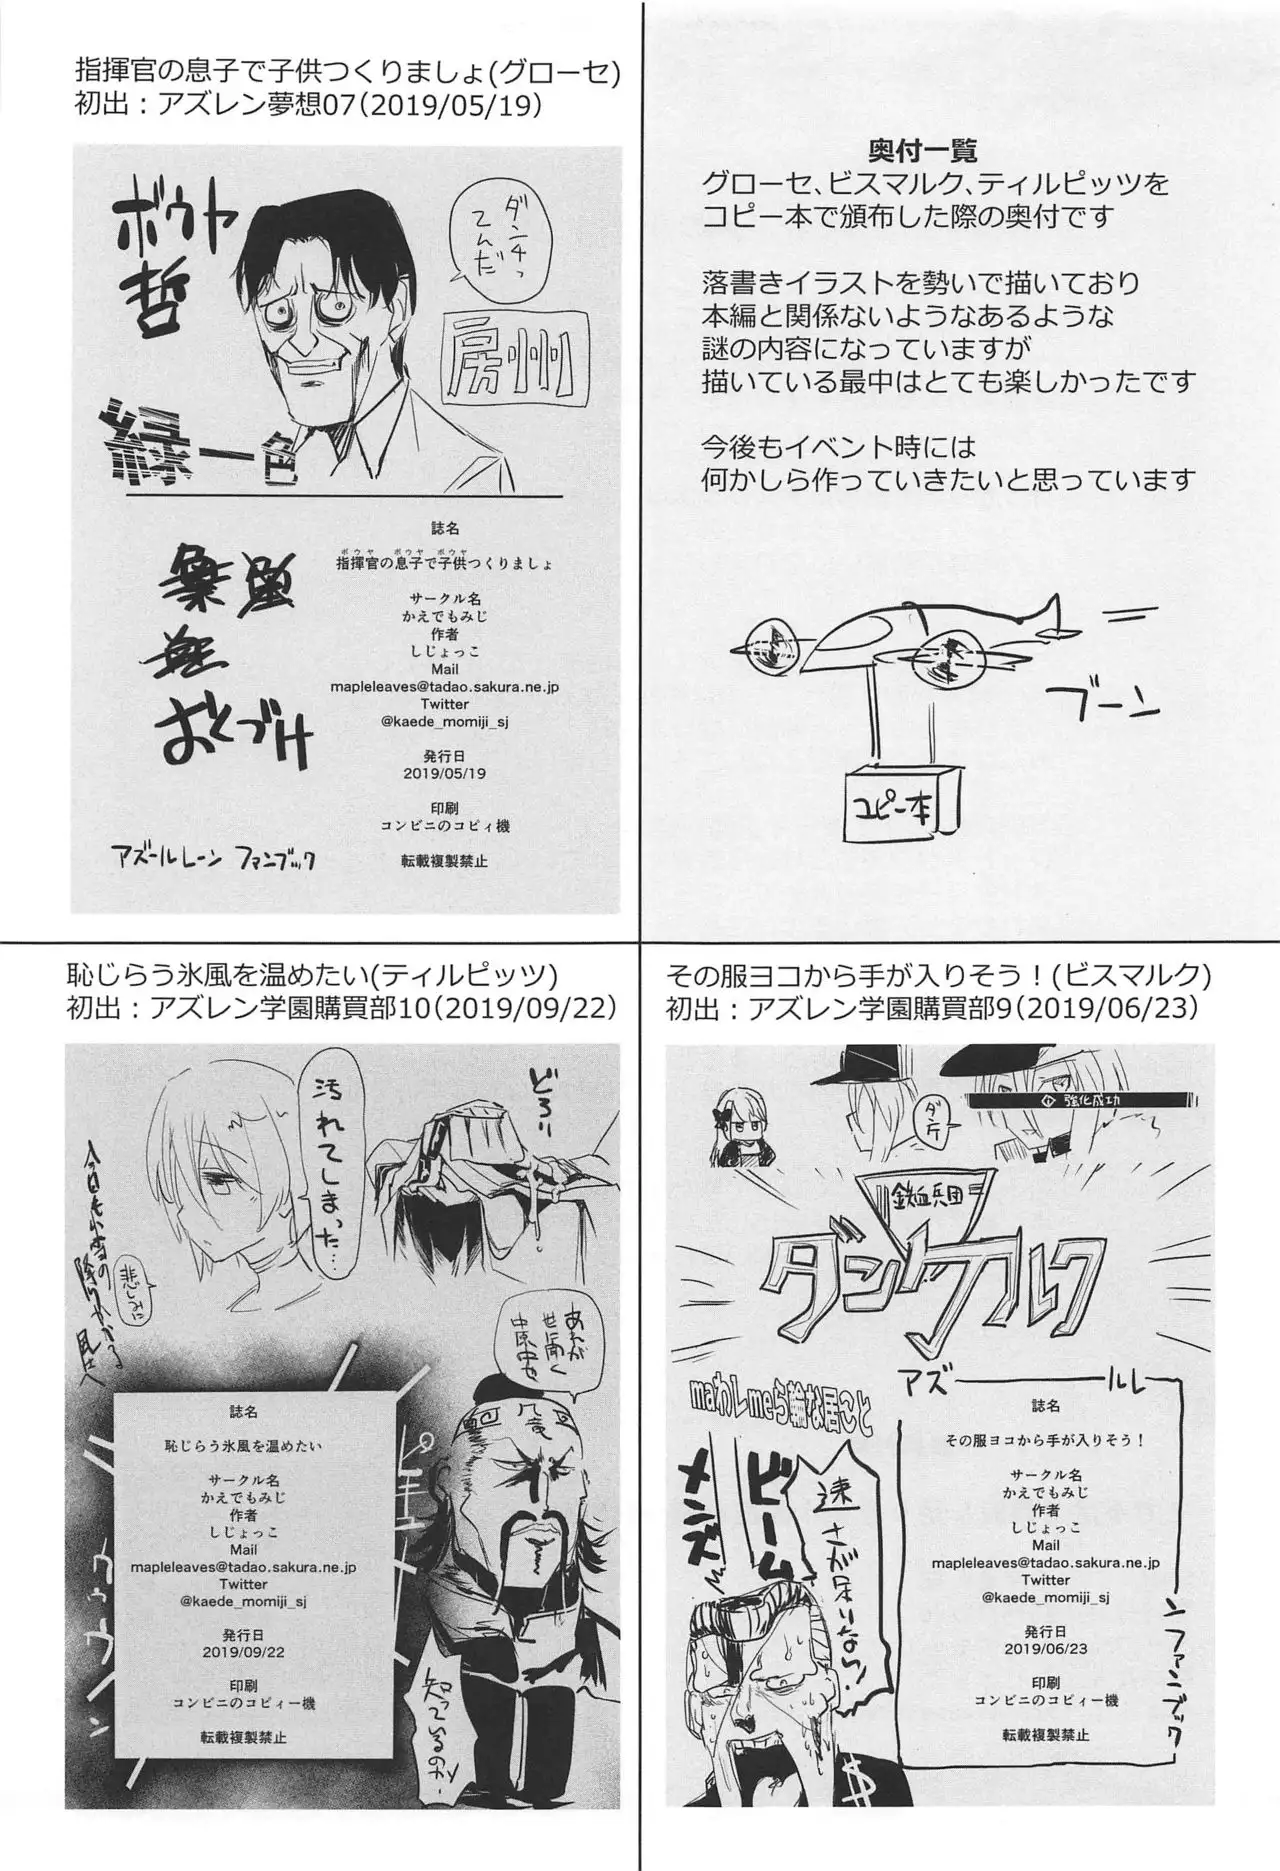 指揮官の息子で子供つくりましょ(グローセ)
初出：アズレン夢想07(2019/05/19)
ボウヤ
哲
ダンチっ
てんだ
房州
緑一色
おくづけ
誌名
ボウヤ ボウヤ ボウヤ
指揮官の息子で子供つくりましょ
サークル名
かえでもみじ
作者
しじょっこ
Mail
mapleleaves@tadao.sakura.ne.jp
Twitter
@kaede_momiji_sj
発行日
2019/05/19
印刷
コンビニのコピィ機
転載複製禁止
アズールレーン ファンブック
奥付一覧
グローセ、ビスマルク、ティルピッツを
コピー本で頒布した際の奥付です
落書きイラストを勢いで描いており
本編と関係ないようなあるような
謎の内容になっていますが
描いている最中はとても楽しかったです
今後もイベント時には
何かしら作っていきたいと思っています
ブーン
コピー本
恥じらう氷風を温めたい(ティルピッツ)
初出：アズレン学園購買部10(2019/09/22)
どろり
汚れてしまった…
悲しみに
今日も小雪の
降りかかる
あれが
世に聞く
中原中也
知っているのか
誌名
恥じらう氷風を温めたい
サークル名
かえでもみじ
作者
しじょっこ
Mail
mapleleaves@tadao.sakura.ne.jp
Twitter
@kaede_momiji_sj
発行日
2019/09/22
印刷
コンビニのコピィー機
転載複製禁止
その服ヨコから手が入りそう！(ビスマルク)
初出：アズレン学園購買部9(2019/06/23)
強化成功
鉄血兵団
ダンケルク
アズールレ
ンファンブック
maわしmeら輪な居こと
メンズ
ビーム
速さが足りない！
$
誌名
その服ヨコから手が入りそう！
サークル名
かえでもみじ
作者
しじょっこ
Mail
mapleleaves@tadao.sakura.ne.jp
Twitter
@kaede_momiji_sj
発行日
2019/06/23
印刷
コンビニのコピィー機
転載複製禁止